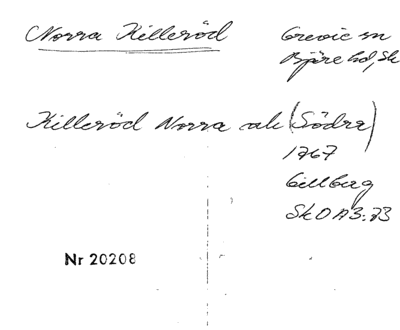 Norra Killeröd
Grevie sn
Bjäre hd, Sk
Killeröd Norra ak (Södra)
1767
Gillberg
Sk O A3:23
Nr 20208